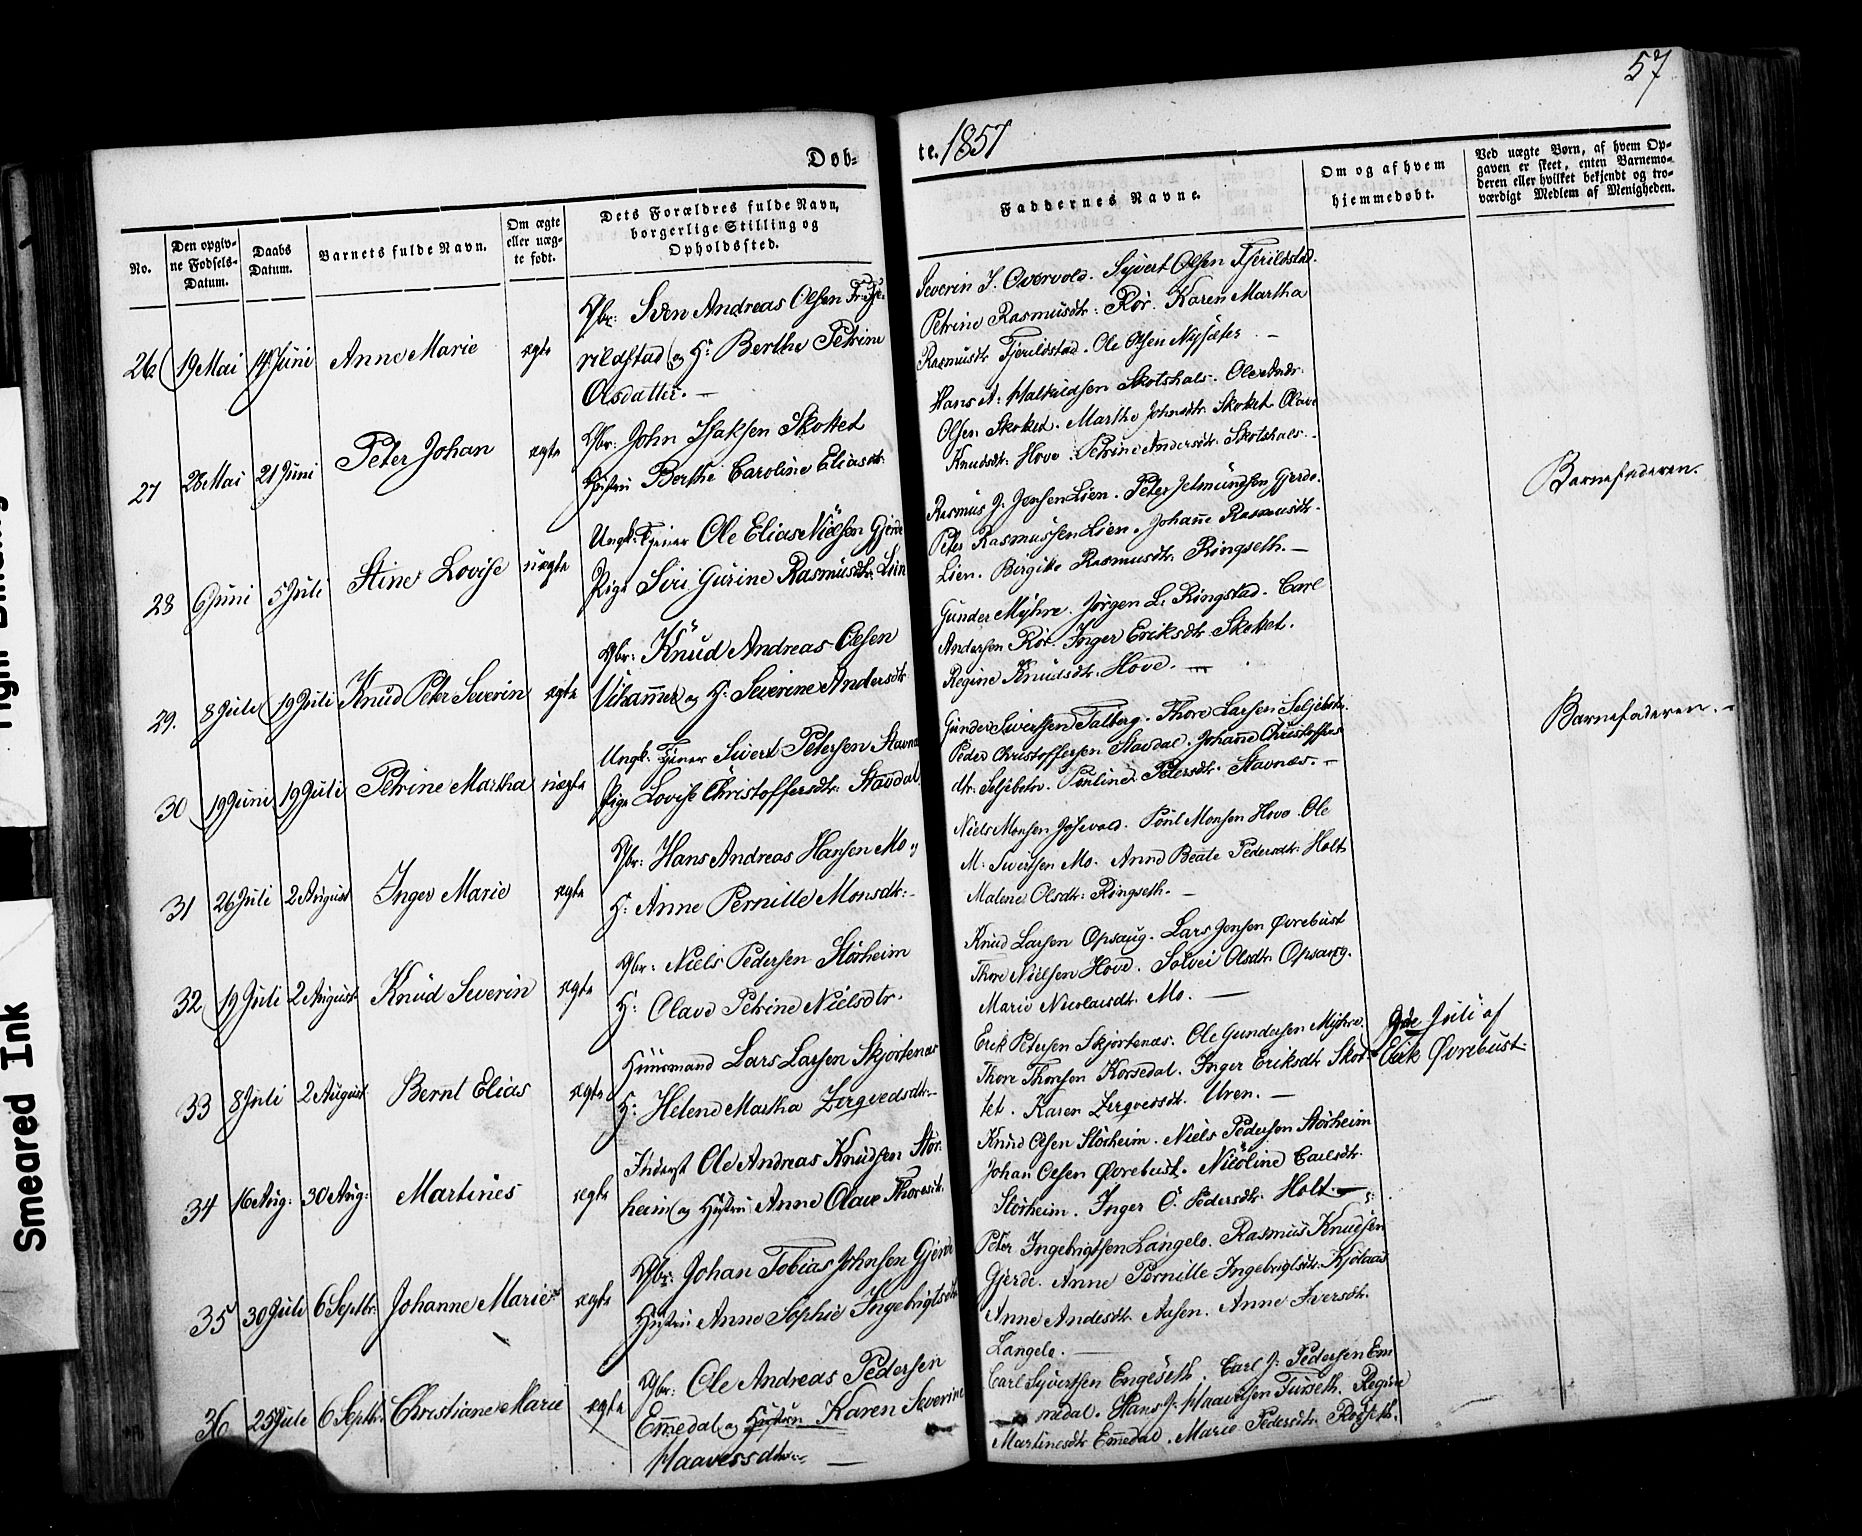 57
Døb-
te. 1857
No.
Den opgiv-
ne Fødsels-
Datum.
Daabs
Datum.
Barnets fulde Navn.
Om ægte
eller uæg-
te født.
Dets Forældres fulde Navn,
borgerlige Stilling og
Opholdssted.
Faddernes Navne.
Om og af hvem
hjemmedøbt.
Ved uægte Børn, af hvem Op-
gaven er skeet, enten Barnemo-
deren eller hvilket bekjendt og tro-
værdigt Medlem af Menigheden.
26 19 Mai 14 Juni Anne Marie ægte
Gbr: Sven Andreas Olsen
rildstad og H: Berthe Petrine
Olsdatter. —
Severin J. Overvold. Syvert Olsen Fjerildstad.
Petrine Rasmusdtr: Rør. Karen Martha
Rasmusdtr Fjerildstad. Ole Olsen Nysæter —
27 28 Mai 21 Juni Peter Johan ægte
Gbr: John Isaksen Skottet
Hustru Berthe Caroline Eliasdtr
Hans A: Skotshals. Ole Andr:
Olsen Skottet. Marthe Johnsdtr: Skottet Olave
Knudsdtr: Hove. Petrine Andersdtr. Skotshals.
28 6 Juni 5 Juli Stine Lovise uægte
Ungk: Tjener Ole Elias Nielsen Gjerde
Pige Siri Gurine Rasmusdtr: Lien
Rasmus J. Jensen Lien. Peter Jetmundsen Gjerde.
Peter Rasmussen Lien. Johanne Rasmusdtr.
Lien. Birgitte Rasmusdtr. Ringseth. —
Barnefaderen.
29. 8 Juli 19 Juli Knud Peter Severin ægte
Gbr: Knud Andreas Olsen
Vihammer og H: Severine Andersdtr
Gunder Myhre. Jørgen L. Ringstad. Carl
Andersen Rør. Inger Eriksdtr. Skottet.
Regine Knudsdtr. Hove. —
30 19 Juni 19 Juli Petrine Martha uægte
Ungk. Tjener Sivert Petersen Stavnæs
Pige Lovise Christoffersdtr: Stavdal
Gunder Sivertsen Talberg. Thore Larsen Seljebotn.
Peder Christoffersen Stavdal. Johanne Christoffers
dtr: Seljebotn. Pauline Petersdtr. Stavnæs. —
Barnefaderen. —
31 26 Juli 2 August Inger Marie ægte
Gbr: Hans Andreas Hansen Mo og
H: Anne Pernille Monsdtr: —
Niels Monsen Jøsevold. Poul Monsen Hove. Ole
M: Sivertsen Mo. Anne Beate Pedersdtr: Holt
Malene Olsdtr: Ringseth. —
32 19 Juli 2 August Knud Severin ægte
Gbr: Niels Pedersen Storheim
H: Olave Petrine Nielsdtr.
Knud Larsen Opsaug. Lars Jensen Øvrebust
Thore Nielsen Hove. Solvei Olsdtr. Opsaug.
Marie Nicolaisdtr. Mo. —
33 8 Juli 2 August Bernt Elias ægte
Huusmand Lars Larsen Skjortenæs
H: Helene Martha
Erik Petersen Skjortenæs. Ole Gundersen Myhre.
Thore Thoresen Korsedal. Inger Eriksdtr. Skot-
tet. Karen Uren. —
9de Juli af
Erik Øvrebust
34 16 Aug: 30 Aug: Martines ægte
Inderst Ole Andreas Knudsen Stor-
heim og Hustru Anne Olave Thoresdtr.
Knud Olsen Storheim. Niels Pedersen Storheim
Johan Olsen Øvrebust. Nicoline Carlsdtr.
Storheim. Inger O. Pedersdtr. Holt. —
35 30 Juli 6 Septbr. Johanne Marie ægte
Gbr: Johan Tobias Johnsen Gjerde
Hustru Anne Sophie Ingebrigtsdtr
Peter Ingebrigtsen Langelo. Rasmus Knudsen
Gjerde. Anne Pernille Ingebrigtsdtr. Kjølaas
Anne Andesdtr. Aasen. Anne Iversdtr.
Langelo. —
36 25 Juli 6 Septbr. Christiane Marie ægte
Gbr: Ole Andreas Pedersen
Emedal og Hustru Karen Severine
Haaversdtr —
Carl Syvertsen Engeseth. Carl J. Pedersen Em
medal. Hans J. Haaversen Furseth. Regine
Martinesdtr Emedal. Marie Pedersdtr. Rogseth.
Smeared Ink